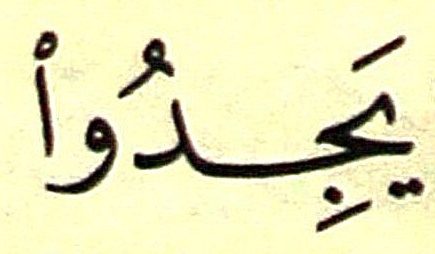 يَجِدُواْ